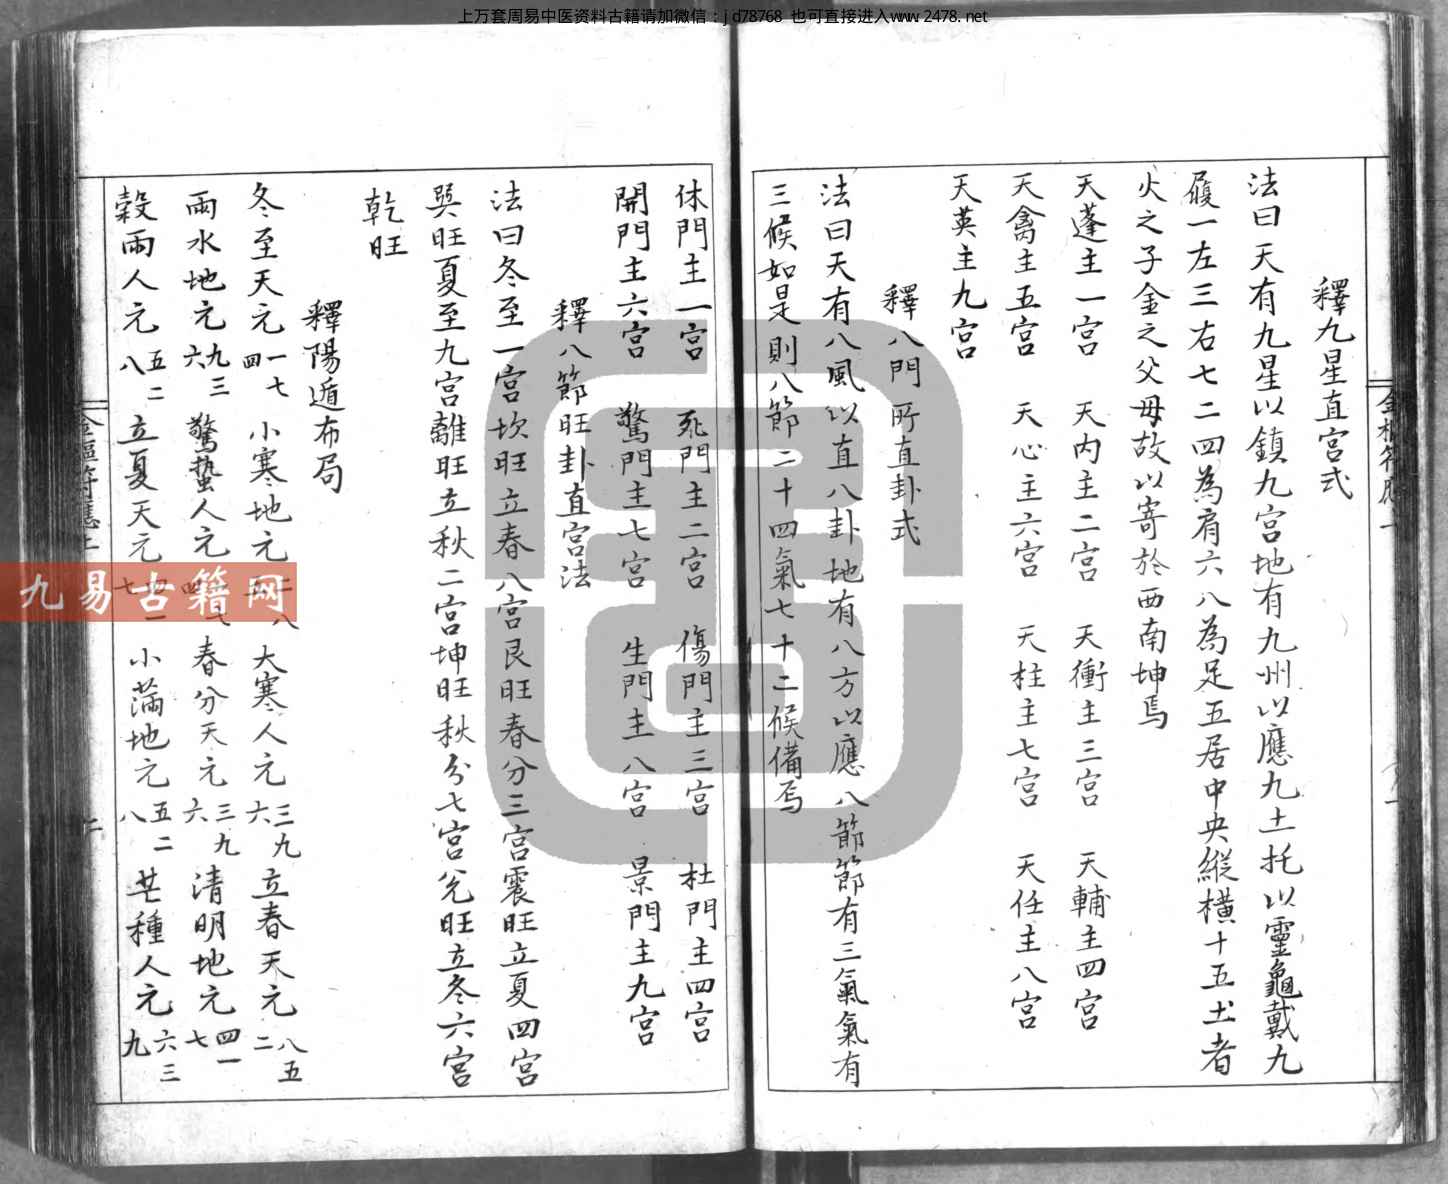 上万套周易中医资料古籍请加微信：jd78768 也可直接进入www.2478.net
釋九星直宮式
法曰天有九星以鎮九宮地有九州以應九土托以靈龜戴九
履一左三右七二四為肩六八為足五居中央縱橫十五土者
火之子金之父母故以寄於西南坤焉
天蓬主一宮 天内主二宮 天衝主三宮 天輔主四宮
天禽主五宮 天心主六宮 天柱主七宮 天任主八宮
天英主九宮
釋八門所直卦式
法曰天有八風以直八卦地有八方以應八節節有三氣氣有
三候如是則八節二十四氣七十二候備焉
休門主一宮 死門主二宮 傷門主三宮 杜門主四宮
開門主六宮 驚門主七宮 生門主八宮 景門主九宮
釋八節旺卦直宮法
法曰冬至一宮坎旺立春八宮艮旺春分三宮震旺立夏四宮
巽旺夏至九宮離旺立秋二宮坤旺秋分七宮兌旺立冬六宮
乾旺
釋陽遁布局
冬至天元一七四 小寒地元二八 大寒人元三九六 立春天元八五二
雨水地元九三六 驚蟄人元七四 春分天元三九六 清明地元四一七
穀雨人元五二八 立夏天元四一七 小滿地元五二八 芒種人元六三九
符應上
二
九易古籍网